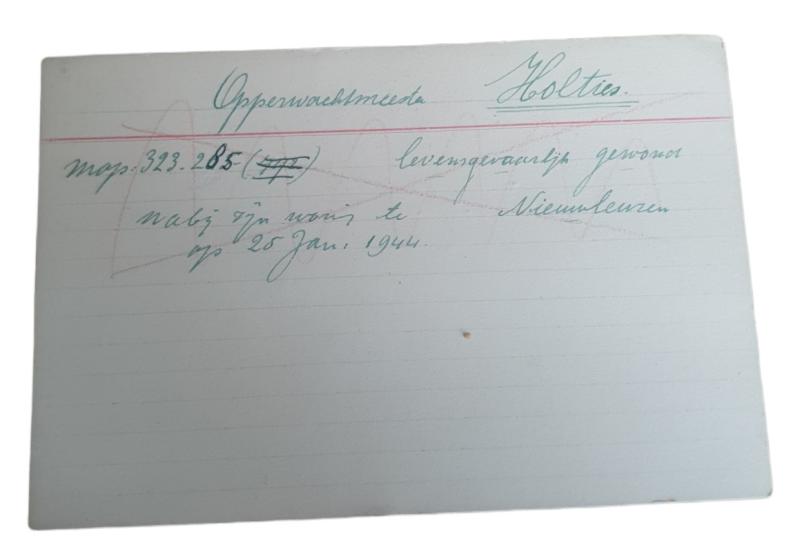 Opperwachtmeester Holties.
map. 323.285 ( ) levensgevaarlijk gewond
nabij zijn woning te Nieuwleusen
op 25 Jan. 1944.